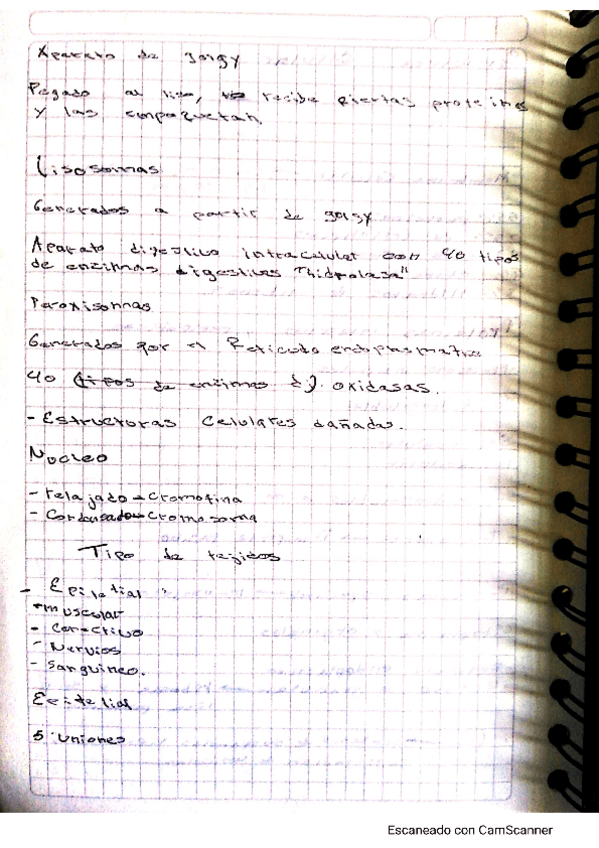 Aparato de golgy
Pegado al liso, recibe ciertas proteinas
y las empaquetan.
Lisosomas
Generados a partir de golgy
Aparato digestivo intracelular con 40 tipos
de enzimas digestivas "hidrolasa"
Peroxisomas
Generados por el Reticulo endoplasmatico
40 (tipos de enzimas d) oxidasas.
- Estructuras Celulares dañadas.
Nucleo
- relajado → cromatina
- Condensado → cromosoma
Tipo de tejidos
- Epiletial
- muscular
- conectivo
- Nervios
- Sanguineo.
Epitelial
5 uniones
Escaneado con CamScanner